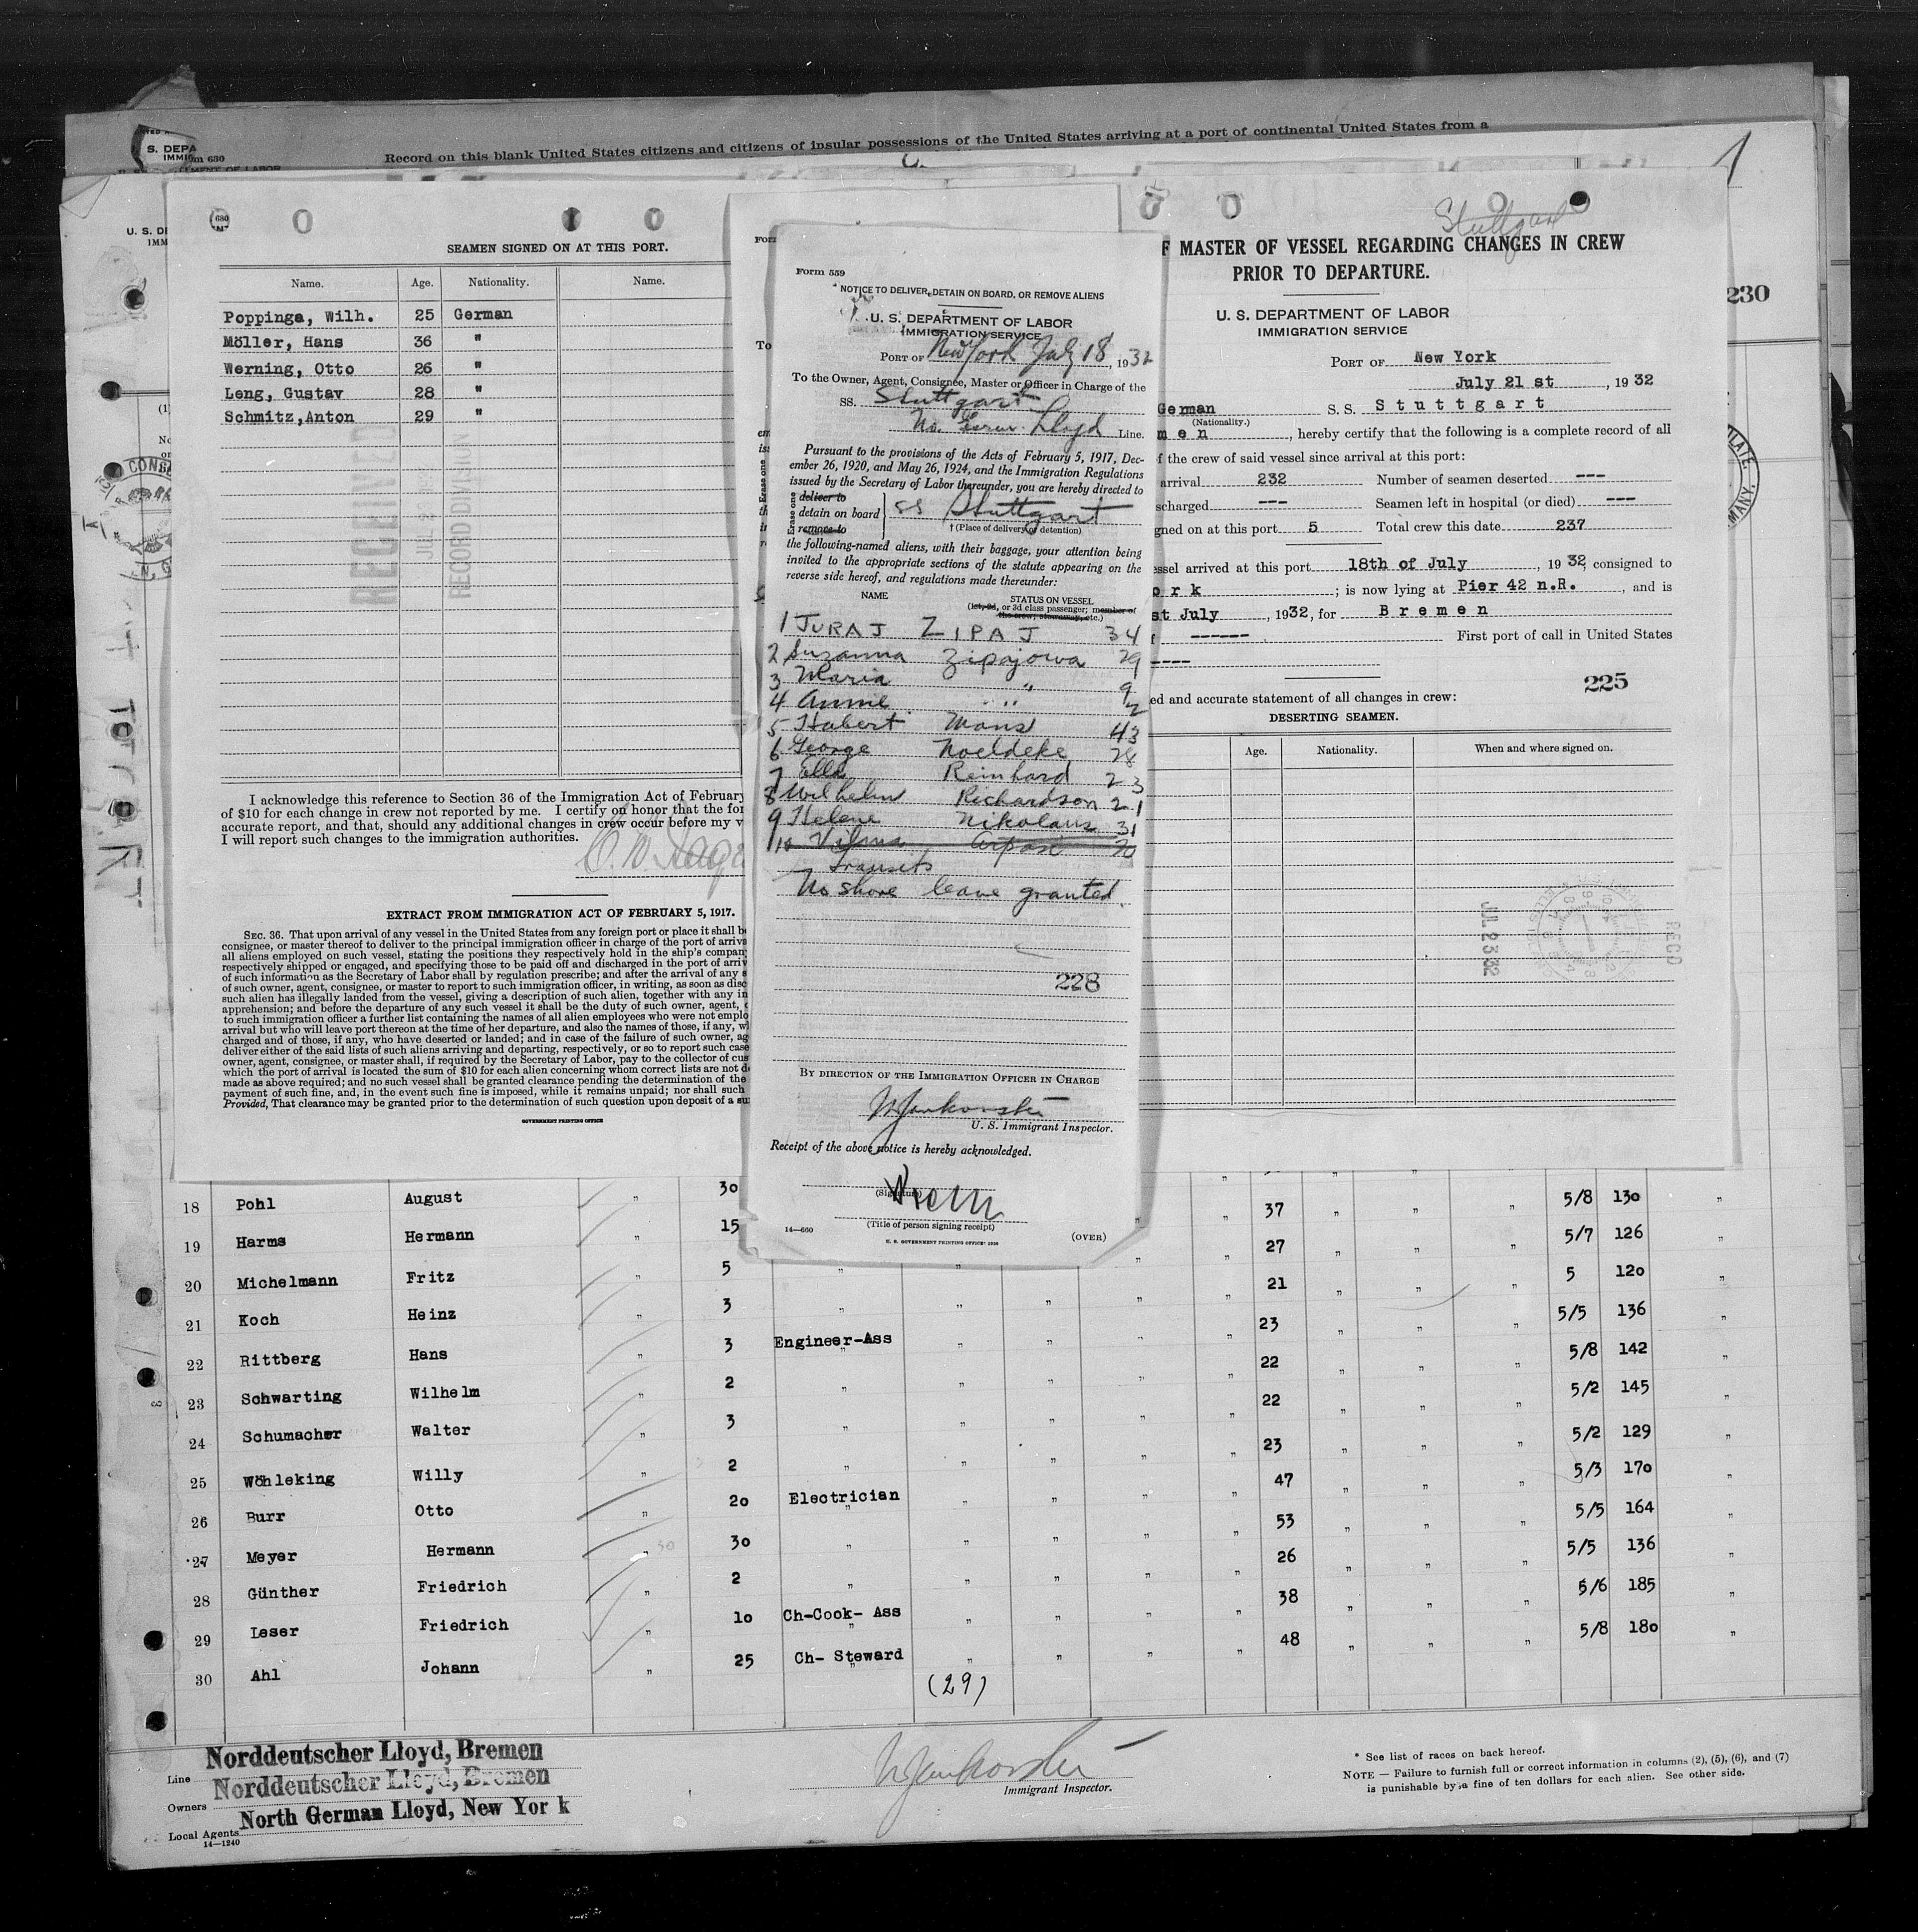 Record on this blank United States citizens and citizens of insular possessions of the United States arriving at a port of continental United States from a
S. DEPA
IMMIG
m 630
U. S. DE
IMM
230
SEAMEN SIGNED ON AT THIS PORT.
Name. Age. Nationality. Name.
Poppinga, Wilh. 25 German
Möller, Hans 36 "
Werning, Otto 26 "
Leng, Gustav 28 "
Schmitz,Anton 29 "
RECEIVED
RECORD DIVISION
I acknowledge this reference to Section 36 of the Immigration Act of February
of $10 for each change in crew not reported by me. I certify on honor that the for
accurate report, and that, should any additional changes in crew occur before my v
I will report such changes to the immigration authorities.
EXTRACT FROM IMMIGRATION ACT OF FEBRUARY 5, 1917.
SEC. 36. That upon arrival of any vessel in the United States from any foreign port or place it shall b
consignee, or master thereof to deliver to the principal immigration officer in charge of the port of arriva
all aliens employed on such vessel, stating the positions they respectively hold in the ship's compan
respectively shipped or engaged, and specifying those to be paid off and discharged in the port of arriv
of such information as the Secretary of Labor shall by regulation prescribe; and after the arrival of any s
of such owner, agent, consignee, or master to report to such immigration officer, in writing, as soon as disc
such alien has illegally landed from the vessel, giving a description of such alien, together with any in
apprehension; and before the departure of any such vessel it shall be the duty of such owner, agent,
to such immigration officer a further list containing the names of all alien employees who were not emplo
arrival but who will leave port thereon at the time of her departure, and also the names of those, if any, w
charged and of those, if any, who have deserted or landed; and in case of the failure of such owner, ag
deliver either of the said lists of such aliens arriving and departing, respectively, or so to report such case
owner, agent, consignee, or master shall, if required by the Secretary of Labor, pay to the collector of cus
which the port of arrival is located the sum of $10 for each alien concerning whom correct lists are not d
made as above required; and no such vessel shall be granted clearance pending the determination of the
payment of such fine, and, in the event such fine is imposed, while it remains unpaid; nor shall such
Provided, That clearance may be granted prior to the determination of such question upon deposit of a su
GOVERNMENT PRINTING OFFICE
Form 559
NOTICE TO DELIVER, DETAIN ON BOARD, OR REMOVE ALIENS
U. S. DEPARTMENT OF LABOR
IMMIGRATION SERVICE
PORT OF New York July 18, 1932
To the Owner, Agent, Consignee, Master or Officer in Charge of the
SS. Stuttgart
No. Ger Lloyd Line.
Pursuant to the provisions of the Acts of February 5, 1917, Dec-
ember 26, 1920, and May 26, 1924, and the Immigration Regulations
issued by the Secretary of Labor thereunder, you are hereby directed to
Erase one
deliver to
detain on board SS Stuttgart
remove to
† (Place of delivery or detention)
the following-named aliens, with their baggage, your attention being
invited to the appropriate sections of the statute appearing on the
reverse side hereof, and regulations made thereunder:
NAME STATUS ON VESSEL
(1st, 2d, or 3d class passenger; member of
the crew; stowaway, etc.)
1 JURAJ ZIPAJ 34
2 Suzanna Zipajowa 29
3 Maria " 9
4 Annie " 2
5 Hubert Mans 43
6 George Noeldeke 28
7 Ella Reinhard 23
8 Wilhelm Richardson 21
9 Helene Nikolaus 31
10 Vilma Arpasi 20
Transits
No shore leave granted.
228
BY DIRECTION OF THE IMMIGRATION OFFICER IN CHARGE
U. S. Immigrant Inspector.
Receipt of the above notice is hereby acknowledged.
(Signature)
(Title of person signing receipt)
14—660
U. S. GOVERNMENT PRINTING OFFICE: 1930
(OVER)
Stuttgart
F MASTER OF VESSEL REGARDING CHANGES IN CREW
PRIOR TO DEPARTURE.
U. S. DEPARTMENT OF LABOR
IMMIGRATION SERVICE
PORT OF New York
July 21 st , 1932
German S. S. Stuttgart
(Nationality.)
men , hereby certify that the following is a complete record of all
f the crew of said vessel since arrival at this port:
arrival 232 Number of seamen deserted ---
scharged --- Seamen left in hospital (or died) ---
gned on at this port 5 Total crew this date 237
essel arrived at this port 18th of July , 1932, consigned to
ork ; is now lying at Pier 42 n.R. , and is
st July , 1932, for Bremen
------ First port of call in United States
----
225
ed and accurate statement of all changes in crew:
DESERTING SEAMEN.
Age. Nationality. When and where signed on.
JUL 23 32
RECD
18 Pohl August " 30 " 37 " " " 5/8 130 "
19 Harms Hermann " 15 " 27 " " " 5/7 126 "
20 Michelmann Fritz " 5 " " " " " 21 " " " 5 120 "
21 Koch Heinz " 3 " " " " " 23 " " " 5/5 136 "
22 Rittberg Hans " 3 Engineer-Ass " " " " 22 " " " 5/8 142 "
23 Schwarting Wilhelm " 2 " " " " " 22 " " " 5/2 145 "
24 Schumacher Walter " 3 " " " " " 23 " " " 5/2 129 "
25 Wöhleking Willy " 2 " " " " " 47 " " " 5/3 170 "
26 Burr Otto " 20 Electrician " " " " 53 " " " 5/5 164 "
27 Meyer Hermann " 30 " " " " " 26 " " " 5/5 136 "
28 Günther Friedrich " 2 " " " " " 38 " " " 5/6 185 "
29 Leser Friedrich " 10 Ch-Cook- Ass " " " " 48 " " " 5/8 180 "
30 Ahl Johann " 25 Ch- Steward " " " "
(29)
Line Norddeutscher Lloyd, Bremen
Owners Norddeutscher Lloyd, Bremen
Local Agents North German Lloyd, New York
14—1240
Immigrant Inspector.
* See list of races on back hereof.
NOTE — Failure to furnish full or correct information in columns (2), (5), (6), and (7)
is punishable by a fine of ten dollars for each alien. See other side.